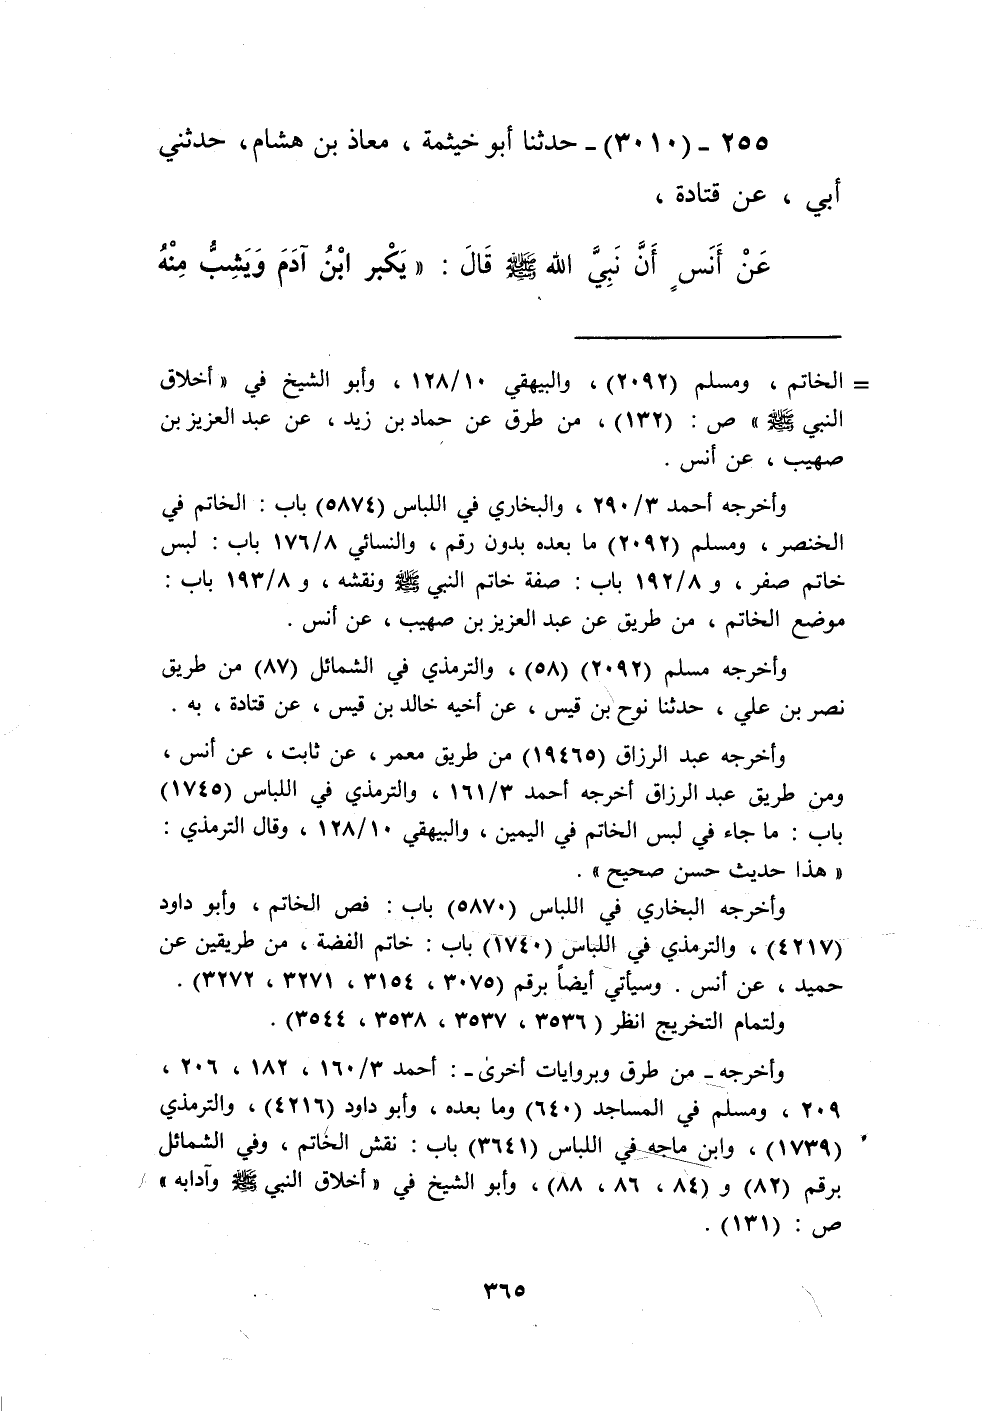 ٢٥٥ ـ (٣٠١٠) ـ حدثنا أبو خيثمة ، معاذ بن هشام، حدثني
أبي ، عن قتادة ،
عَنْ أَنَسٍ أَنَّ نَبِيَّ الله ﷺ قَالَ : « يَكْبر ابْنُ آدَمَ وَيَشِبُّ مِنْهُ
= الخاتم ، ومسلم (٢٠٩٢) ، والبيهقي ١٢٨/١٠ ، وأبو الشيخ في « أخلاق
النبي ﷺ » ص : (١٣٢) ، من طرق عن حماد بن زيد ، عن عبد العزيز بن
صهيب ، عن أنس .
وأخرجه أحمد ٢٩٠/٣ ، والبخاري في اللباس (٥٨٧٤) باب : الخاتم في
الخنصر ، ومسلم (٢٠٩٢) ما بعده بدون رقم ، والنسائي ١٧٦/٨ باب : لبس
خاتم صفر ، و ١٩٢/٨ باب : صفة خاتم النبي ﷺ ونقشه ، و ١٩٣/٨ باب :
موضع الخاتم ، من طريق عن عبد العزيز بن صهيب ، عن أنس .
وأخرجه مسلم (٢٠٩٢) (٥٨) ، والترمذي في الشمائل (٨٧) من طريق
نصر بن علي ، حدثنا نوح بن قيس ، عن أخيه خالد بن قيس ، عن قتادة ، به .
وأخرجه عبد الرزاق (١٩٤٦٥) من طريق معمر ، عن ثابت ، عن أنس ،
ومن طريق عبد الرزاق أخرجه أحمد ١٦١/٣ ، والترمذي في اللباس (١٧٤٥)
باب : ما جاء في لبس الخاتم في اليمين ، والبيهقي ١٢٨/١٠ ، وقال الترمذي :
« هذا حديث حسن صحيح » .
وأخرجه البخاري في اللباس (٥٨٧٠) باب : فص الخاتم ، وأبو داود
(٤٢١٧) ، والترمذي في اللباس (١٧٤٠) باب : خاتم الفضة ، من طريقين عن
حميد ، عن أنس . وسيأتي أيضاً برقم (٣٠٧٥ ، ٣١٥٤ ، ٣٢٧١ ، ٣٢٧٢) .
ولتمام التخريج انظر ( ٣٥٣٦ ، ٣٥٣٧ ، ٣٥٣٨ ، ٣٥٤٤) .
وأخرجه ـ من طرق وبروايات أخرى ـ : أحمد ١٦٠/٣ ، ١٨٢ ، ٢٠٦ ،
٢٠٩ ، ومسلم في المساجد (٦٤٠) وما بعده ، وأبو داود (٤٢١٦) ، والترمذي
(١٧٣٩) ، وابن ماجه في اللباس (٣٦٤١) باب : نقش الخاتم ، وفي الشمائل
برقم (٨٢) و (٨٤ ، ٨٦ ، ٨٨) ، وأبو الشيخ في « أخلاق النبي ﷺ وآدابه »
ص : (١٣١) .
٣٦٥